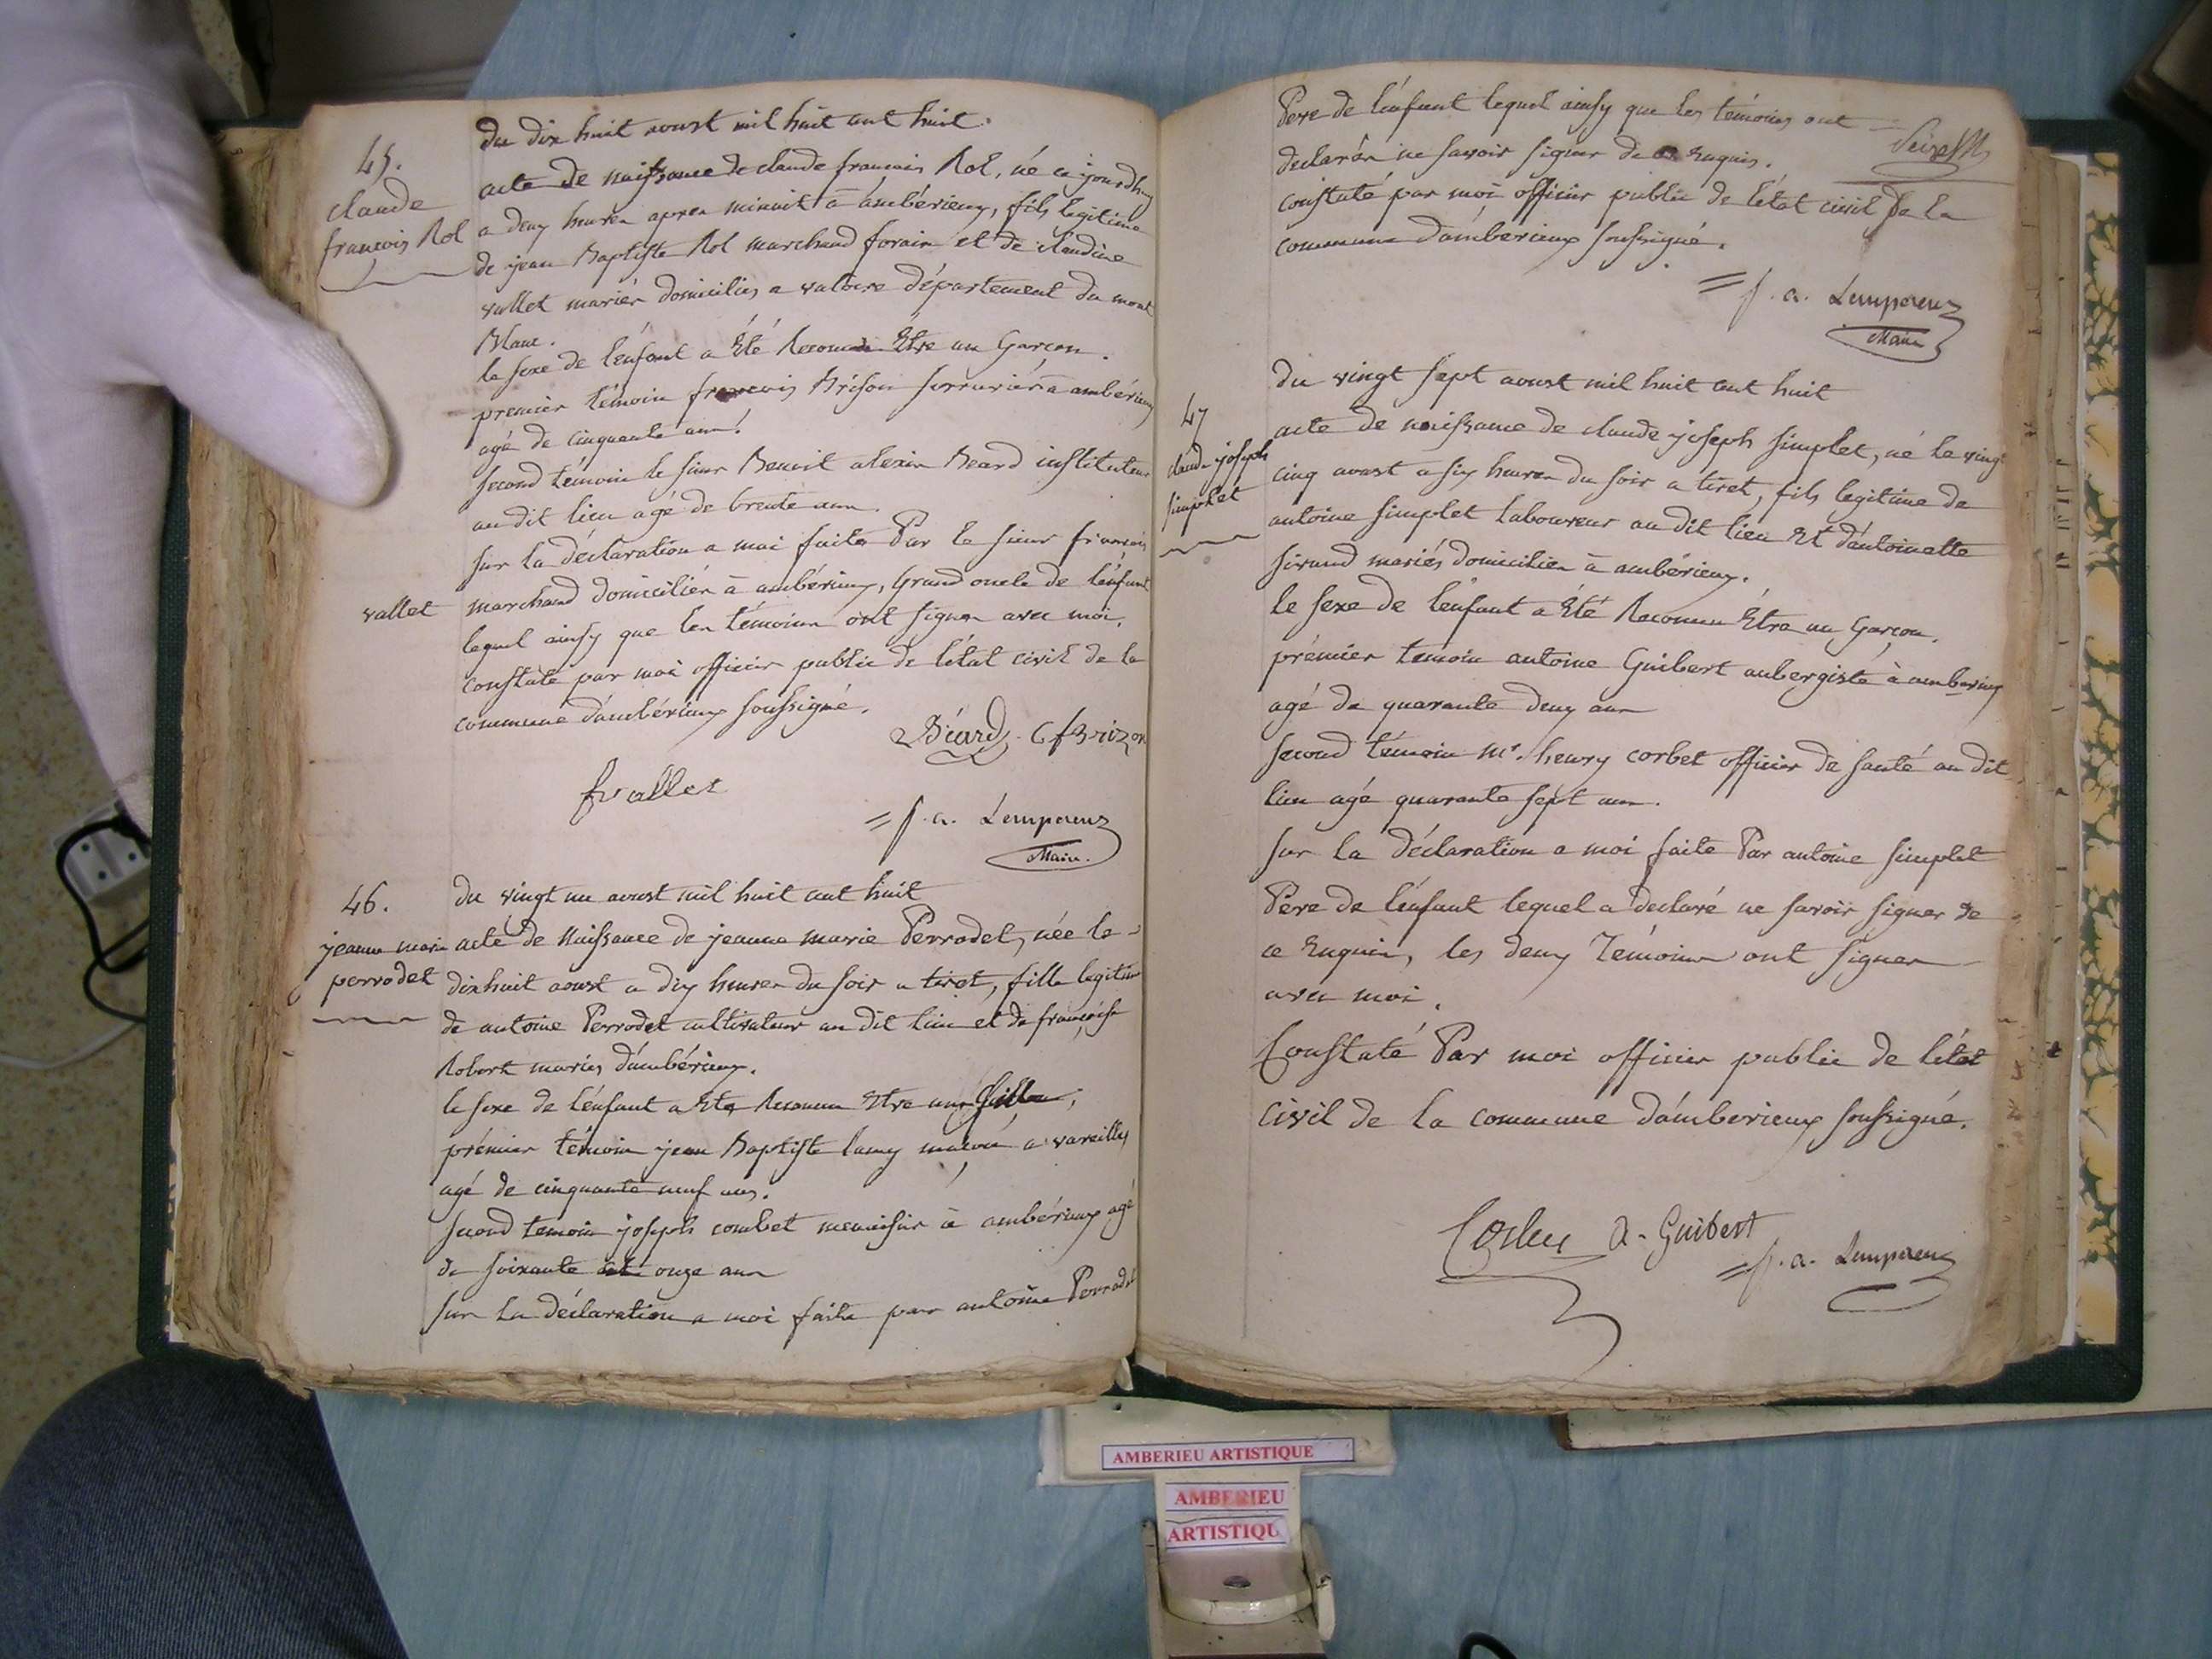 45.
claude
francois Rol
Du dix huit aoust mil huit cent huit.
acte de naissance de claude francois Rol, né ce jourdhuy
a deux heures apres minuit à ambérieux, fils legitime
de jean Baptiste Rol marchand forain et de claudine
vallet mariés domiciliés a valoire département du mont
Blanc.
le sexe de l'enfant a été Reconnu Être un Garcon.
premier témoin francois Brison serrurier à ambérieux
agé de cinquante ans.
second témoin le sieur Benoit alexis Beard instituteur
au dit lieu agé de trente ans.
sur la déclaration a moi faite Par le sieur francois
vallet
marchand domicilié à ambérieux, Grand oncle de l'énfant
lequel ainsy que les témoins ont signer avec moi.
constaté par moi officier public de l'état civil de la
commune d'ambérieux soussigné.
Béard. C f Brizon
f vallet
= f. a. Lempereur
Maire.
46.
jeanne marie
perrodet
du vingt un aoust mil huit cent huit
acte de Naissance de jeanne marie Perrodet, née le
dixhuit aoust a dix heures du soir a tiret, fille legitime
de antoine Perrodet cultivateur au dit lieu et de francoise
Robert mariés d'ambérieux.
le sexe de l'énfant a Eté Reconnu Etre une fille,
prémier témoin jean Baptiste lamy macon a vareilles
agé de cinquante neuf ans.
second temoin joseph combet menuisier à ambérieux agé
de soixante et onze ans
sur la déclaration a moi faite par antoine Perrodet
Pere de l'énfant lequel ainsy que les témoins ont
declarér ne savoir signer de ce Enquis.
constaté par moi officier public de l'état civil de la
commune d'ambérieux soussigné.
= f. a. Lempereur
Maire
47
claude joseph
simplet
du vingt sept aoust mil huit cent huit
acte de naissance de claude joseph simplet, né le vingt
cinq aoust a six heures du soir a tiret, fils legitime de
antoine simplet laboureur au dit lieu et d'antoinette
sirand mariés domiciliés à ambérieux.
le sexe de l'enfant a Eté Reconnu Etre un Garçon.
prémier temoin antoine Guibert aubergiste à amberieux
agé de quarante deux ans
second témoin mr. henry corbet officier de santé au dit
lieu agé quarante sept ans.
sur la déclaration a moi faite Par antoine simplet
Pére de l'énfant lequel a declaré ne savoir signer de
ce Enquis, les deux Témoins ont signer
avec moi.
Constaté Par moi officier public de l'état
civil de la commune d'amberieux soussigné.
A. Guibert
= f. a. Lempereur
AMBERIEU ARTISTIQUE
AMBERIEU
ARTISTIQU